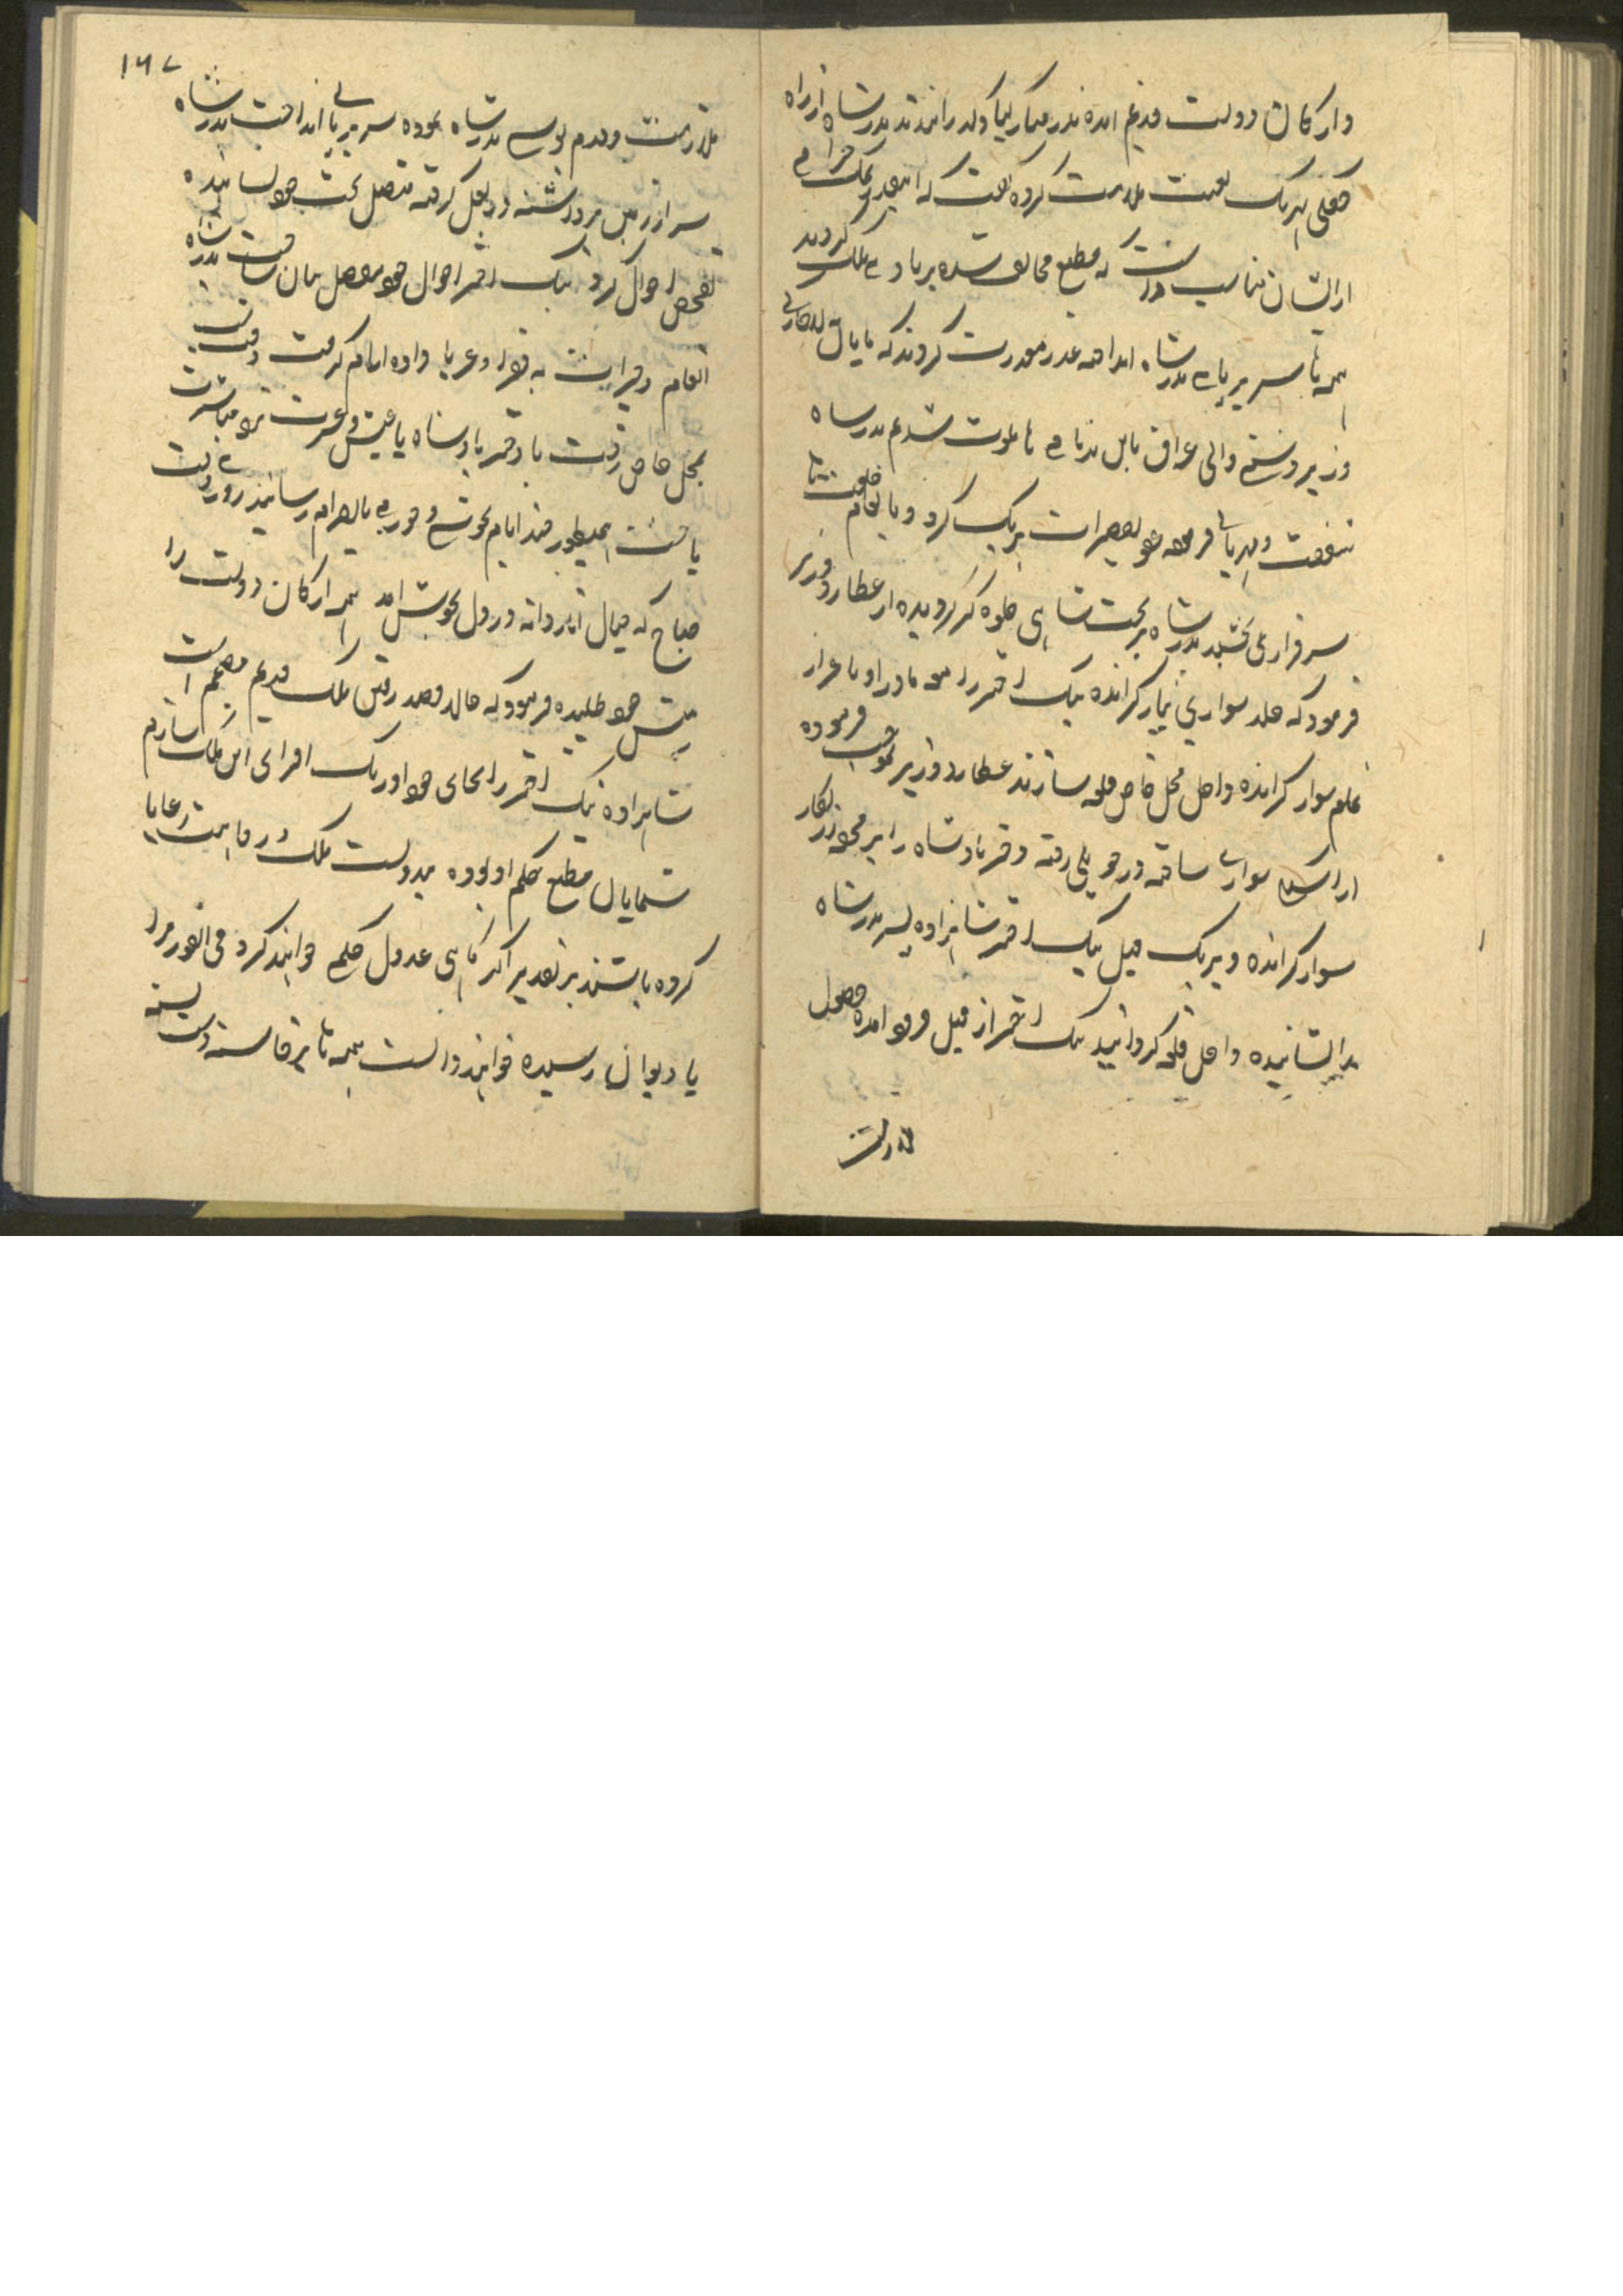 وارکان دولت قدیم امده نذر
خفگی هریک لعنت ملامت کرده گفت که اینقدر نمک حرامی
ازایشان نمناسب نیست که مطیع مخالف شده بربادی ملک کردید
همه ها سر بر پای بدرشاه عذر معذرت کردند که مایان
وزیر و رستم والی عراق بدنامی شدیم بدرشاه
شفقت ومهربانی فرموده عفو تقصیرات هریک کرد و بانعام خلعت ها
سرفرازی بخشید بدرشاه بر تخت شاهی جلوه گر گردیده از عطارد وزیر
فرمود که جلد سواری تیار کرانده نیک اختر را مع مادر او باعزاز
تمام سوار کرانده داخل محل خاص قلعه سازند عطارد وزیر بموجب فرموده
اراسته سواری ساخته در حویلی رفته دختر بادشاه را بر محفه زرنگار
سوار کرانده و بر یک فیل نیک اختر شاهزاده پسر بدرشاه
نشانیده داخل قلعه گردانید نیک اختر از فیل فرود امده حصول
ملازمت
۱۶۷
ملازمت وقدم بوسی بدرشاه نموده سر بر پای انداخت بدرشاه
سر از زمین برداشته در بغل گرفته متصل تخت خود نشانیده
تفحص احوال کرد نیک اختر احوال خود مفصل بیان ساخت بدرشاه
انعام و خیرات به فقرا و غربا داده ارام گرفت وقت شب
بمحل خاص رفت با دختر بادشاه با عیش و عشرت مباشرت
یافت همینطور چند ایام بخوشی و خورمی بانصرام رسانید روزی وقت
صباح که خیال در دل بجوش امد همه ارکان دولت را
پیش خود طلبیده فرمود که حالا قصد رفتن ملک قدیم مصمم است
شاهزاده نیک اختر را بجای خود اورنگ افزای این ملک سازم
شمایان مطیع حکم او بوده بدولت ملک و رفاهیت رعایا
کرده باشند بر تقدیر اگر گاهی عدول حکم خواهند کرد فی الفور مرا
با دیوان رسیده خواهند دانست همه ها برخاسته دست بسته